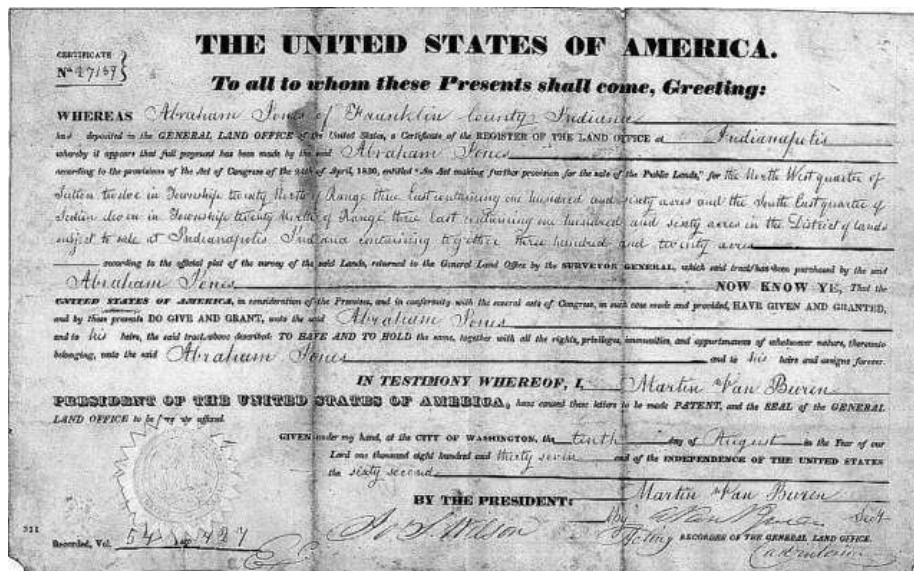 THE UNITED STATES OF AMERICA.
CERTIFICATE
No. 27157
To all to whom these Presents shall come, Greeting:
WHEREAS Abraham Jones of Franklin County Indiana
has deposited in the GENERAL LAND OFFICE of the United States, a Certificate of the REGISTER OF THE LAND OFFICE at Indianapolis
whereby it appears that full payment has been made by the said Abraham Jones
according to the provisions of the Act of Congress of the 24th of April, 1820, entitled "An Act making further provision for the sale of the Public Lands," for the North West quarter of
Section twelve in Township twenty North of Range three East containing one hundred and sixty acres and the South East quarter of
Section eleven in Township twenty North of Range three East containing one hundred and sixty acres in the District of lands
subject to sale at Indianapolis Indiana containing together three hundred and twenty acres
according to the official plat of the survey of the said Lands, returned to the General Land Office by the SURVEYOR GENERAL, which said tract has been purchased by the said
Abraham Jones NOW KNOW YE, That the
UNITED STATES OF AMERICA, in consideration of the Premises, and in conformity with the several acts of Congress, in such case made and provided, HAVE GIVEN AND GRANTED,
and by these presents DO GIVE AND GRANT, unto the said Abraham Jones
and to his heirs, the said tract above described: TO HAVE AND TO HOLD the same, together with all the rights, privileges, immunities, and appurtenances of whatsoever nature, thereunto
belonging, unto the said Abraham Jones and to his heirs and assigns forever.
IN TESTIMONY WHEREOF, I, Martin Van Buren
PRESIDENT OF THE UNITED STATES OF AMERICA, have caused these letters to be made PATENT, and the SEAL of the GENERAL
LAND OFFICE to be hereunto affixed.
GIVEN under my hand, at the CITY OF WASHINGTON, the tenth day of August in the Year of our
Lord one thousand eight hundred and thirty seven and of the INDEPENDENCE OF THE UNITED STATES
the sixty second
BY THE PRESIDENT: Martin Van Buren
By A Van Buren Sec'y
Jos. S. Wilson Acting RECORDER OF THE GENERAL LAND OFFICE.
ad interim
Recorded, Vol. 54 427